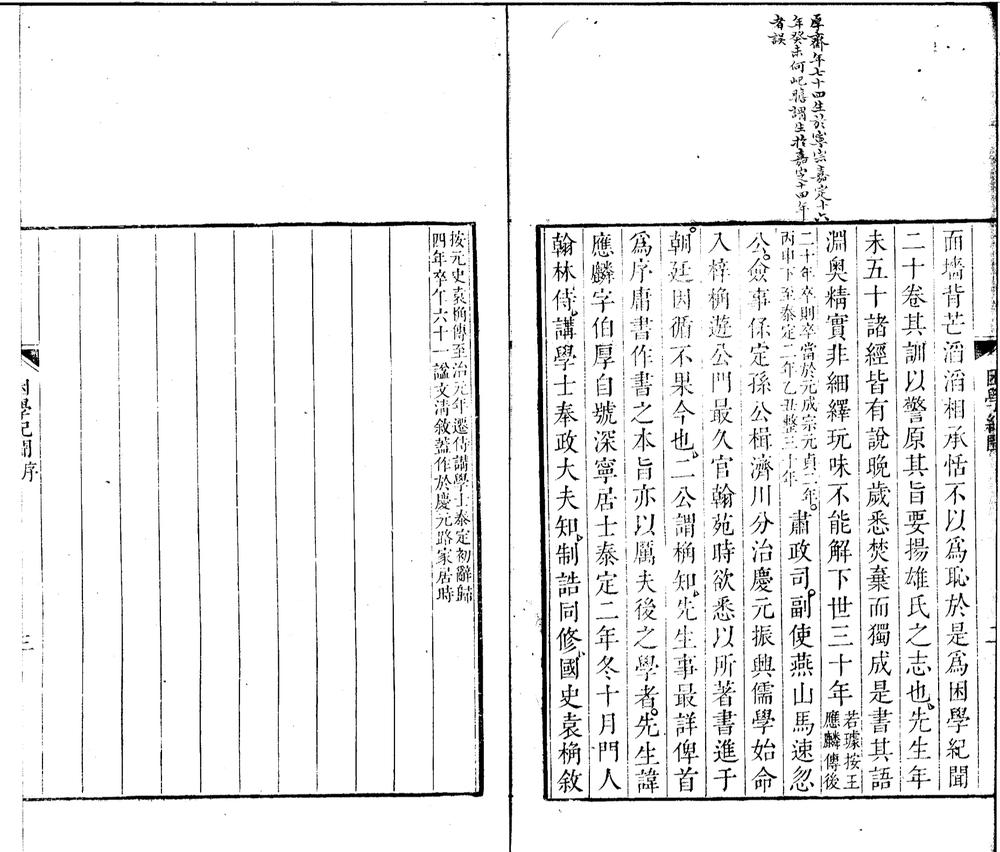 厚齋年七十四生於寧宗嘉定十六
年癸未何屺瞻謂生於嘉定十四年
者誤
面墻背芒滔滔相承恬不以爲恥於是爲困學紀聞
二十卷其訓以警原其旨要揚雄氏之志也先生年
未五十諸經皆有說晚歲悉焚棄而獨成是書其語
淵奧精實非細繹玩味不能解下世三十年
若璩按王
應麟傳後
二十年卒則卒當於元成宗元貞二年
丙申下至泰定二年乙丑整三十年
肅政司副使燕山馬速忽
公僉事保定孫公楫濟川分治慶元振興儒學始命
入梓桷遊公門最久官翰苑時欲悉以所著書進于
朝廷因循不果今也二公謂桷知先生事最詳俾首
爲序庸書作書之本旨亦以厲夫後之學者先生諱
應麟字伯厚自號深寧居士泰定二年冬十月門人
翰林侍講學士奉政大夫知制誥同修國史袁桷敘
按元史袁桷傳至治元年遷侍講學士泰定初辭歸
四年卒年六十一謚文清敘蓋作於慶元路家居時
困學紀聞
二
困學紀聞 序
三